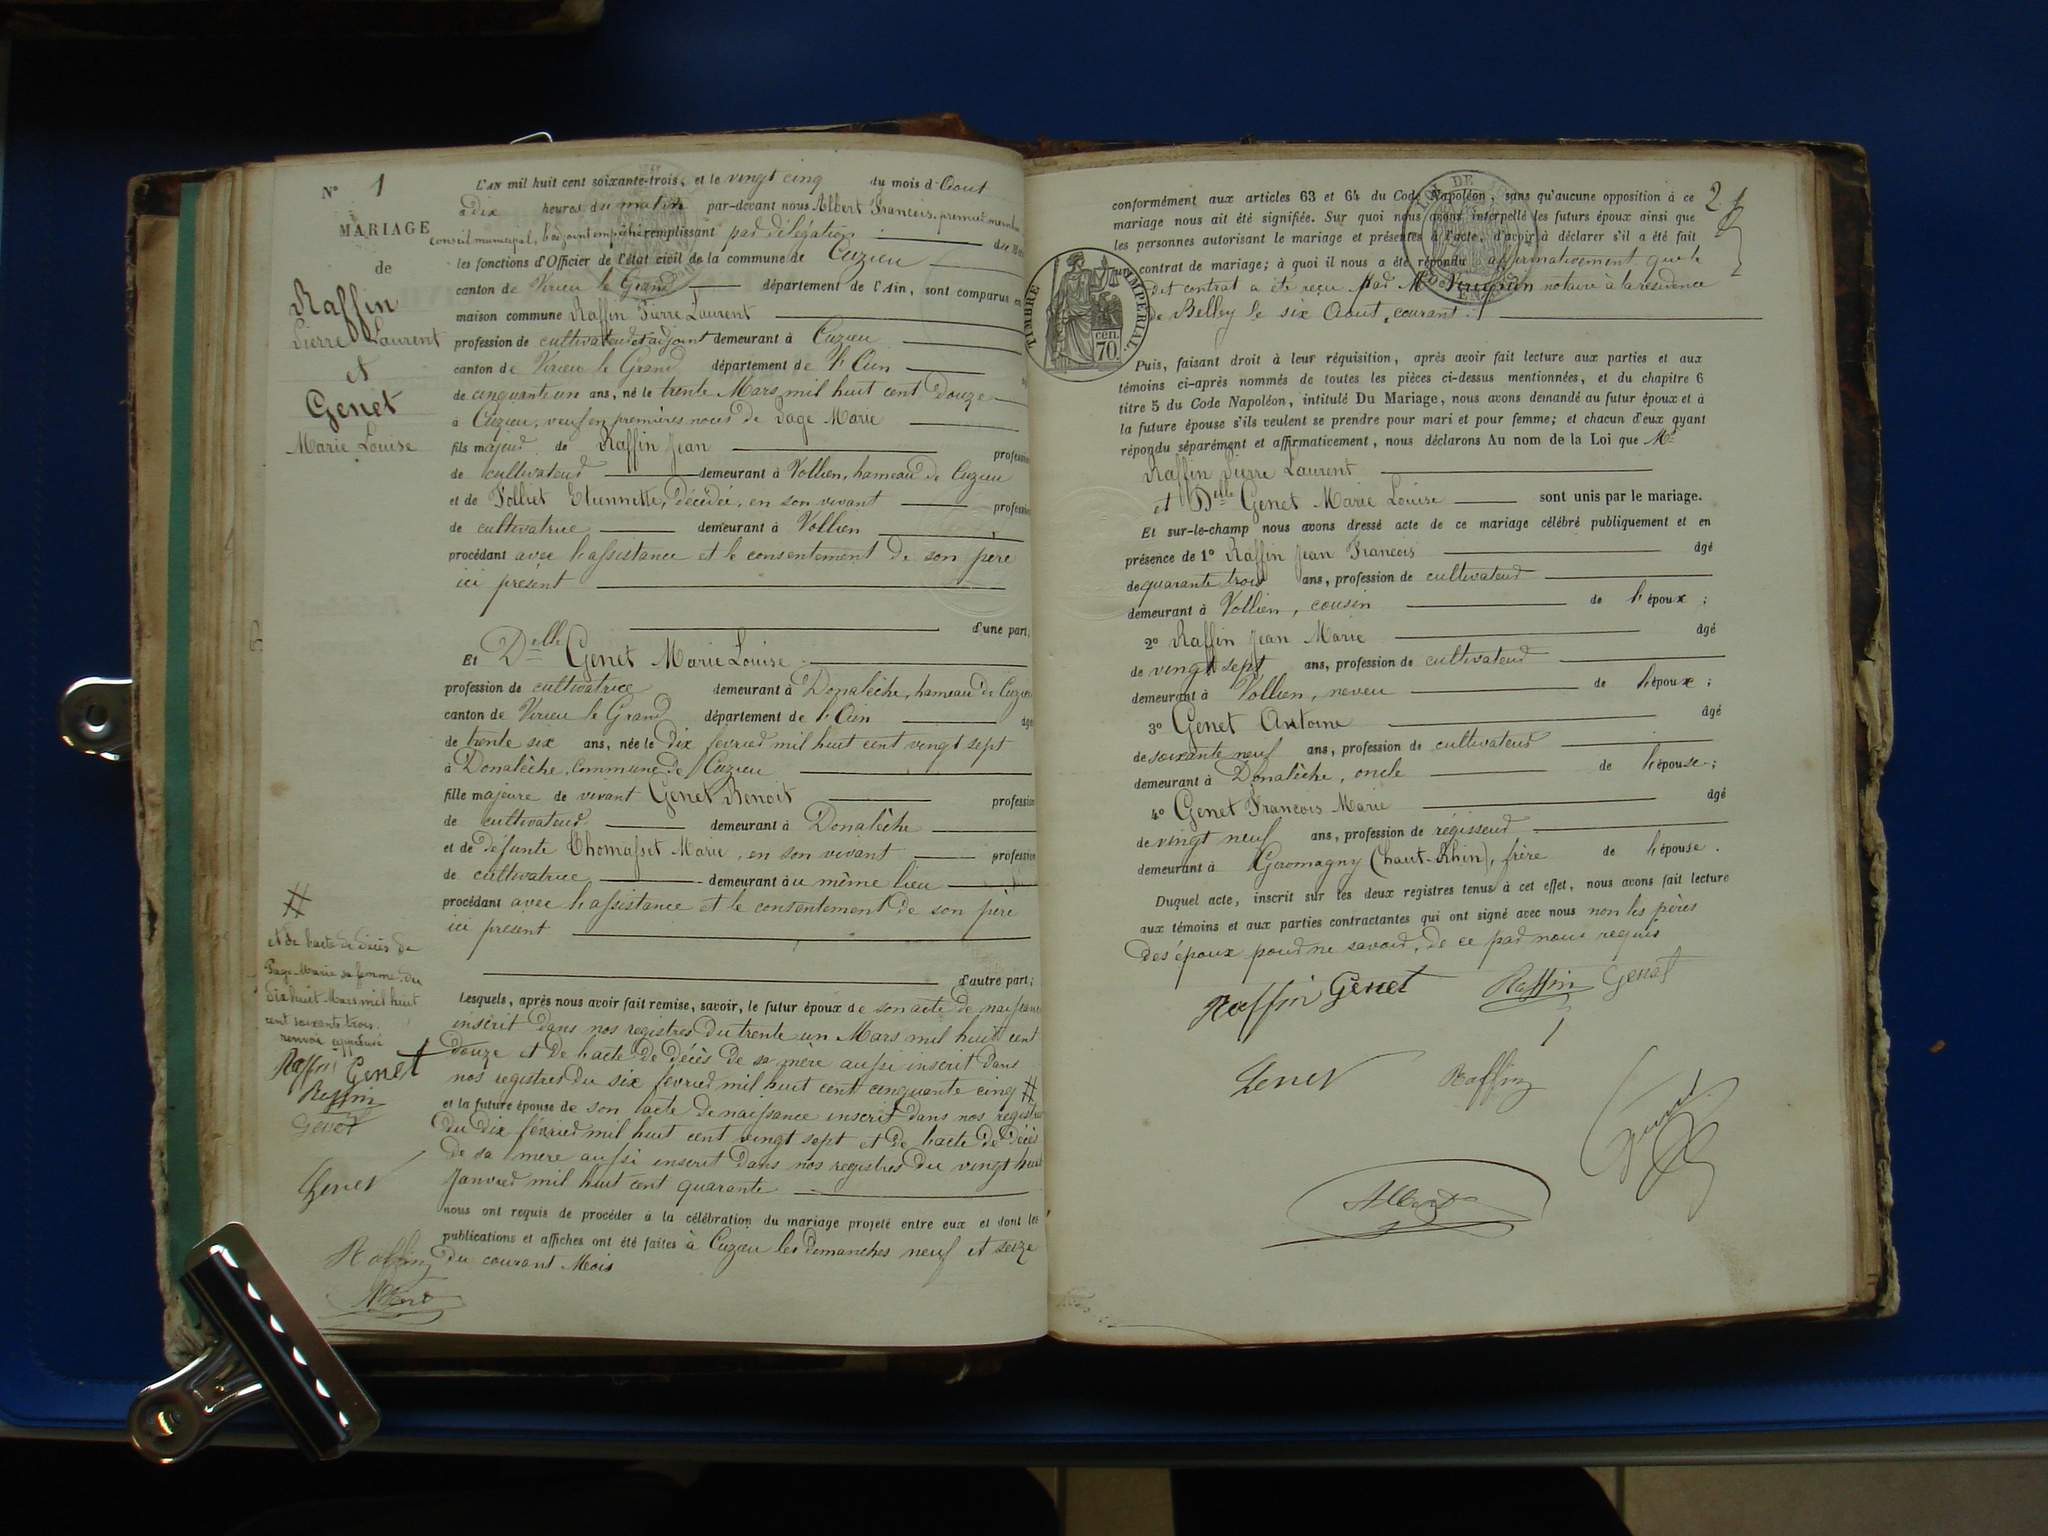 N° 1
MARIAGE
de
Raffin
Pierre Laurent
et
Genet
Marie Louise
L'AN mil huit cent soixante-trois, et le vingt cinq du mois d'Aout
à dix heures du matin par-devant nous Albert Francois, premier membre
conseil municipal, l'adjoint empêché remplissant par délégation
les fonctions d'Officier de l'état civil de la commune de Cuzieu
canton de Virieu le Grand département de l'Ain, sont comparus en
maison commune Raffin Pierre Laurent
profession de cultivateur et adjoint demeurant à Cuzieu
canton de Virieu le Grand département de l'Ain
de cinquante un ans, né le trente Mars mil huit cent Douze
à Cuzieu, veuf en premières noces de Page Marie
fils majeur de Raffin Jean profession
de cultivateur demeurant à Vollien, hameau de Cuzieu
et de Folliet Etiennette, décédée, en son vivant profession
de cultivatrice demeurant à Vollien
procédant avec l'assistance et le consentement de son père
ici présent
d'une part;
Et Delle Genet Marie Louise
profession de cultivatrice demeurant à Donalèche, hameau de Cuzieu
canton de Virieu le Grand département de l'Ain âgée
de trente six ans, née le dix fevrier mil huit cent vingt sept
à Donalèche, commune de Cuzieu
fille majeure de vivant Genet Benoit profession
de cultivateur demeurant à Donalèche
et de défunte Thomasset Marie, en son vivant profession
de cultivatrice demeurant au même lieu
procédant avec l'assistance et le consentement de son père
ici présent
d'autre part;
Lesquels, après nous avoir fait remise, savoir, le futur époux de son acte de naissance
inscrit dans nos registres du trente un Mars mil huit cent
douze et de l'acte de décès de sa mère aussi inscrit dans
nos registres du six fevrier mil huit cent cinquante cinq #
et la future épouse de son acte de naissance inscrit dans nos registres
du dix fevrier mil huit cent vingt sept et de l'acte de décès
de sa mère aussi inscrit dans nos registres du vingt huit
Janvier mil huit cent quarante
nous ont requis de procéder à la célébration du mariage projeté entre eux et dont les
publications et affiches ont été faites à Cuzieu les demanches neuf et seize
du courant Mois
#
et de l'acte de décès de
Page Marie sa femme du
dix huit Mars mil huit
cent soixante trois.
renvoi approuvé
Raffin Genet
Raffin
Genet
Genet
Raffin
Albert
2
conformément aux articles 63 et 64 du Code Napoléon, sans qu'aucune opposition à ce
mariage nous ait été signifiée. Sur quoi nous avons interpellé les futurs époux ainsi que
les personnes autorisant le mariage et présentes à l'acte, d'avoir à déclarer s'il a été fait
un contrat de mariage; à quoi il nous a été répondu affirmativement que le
dit contrat a été reçu par Me notaire à la résidence
de Belley le six Aout courant.
TIMBRE IMPERIAL
70 cen.
Puis, faisant droit à leur réquisition, après avoir fait lecture aux parties et aux
témoins ci-après nommés de toutes les pièces ci-dessus mentionnées, et du chapitre 6
titre 5 du Code Napoléon, intitulé Du Mariage, nous avons demandé au futur époux et à
la future épouse s'ils veulent se prendre pour mari et pour femme; et chacun d'eux ayant
répondu séparément et affirmativement, nous déclarons Au nom de la Loi que Mr
Raffin Pierre Laurent
et Delle Genet Marie Louise sont unis par le mariage.
Et sur-le-champ nous avons dressé acte de ce mariage célébré publiquement et en
présence de 1° Raffin Jean Francois âgé
de quarante trois ans, profession de cultivateur
demeurant à Vollien, cousin de l'époux;
2° Raffin Jean Marie âgé
de vingt sept ans, profession de cultivateur
demeurant à Vollien, neveu de l'époux;
3° Genet Antoine âgé
de soixante neuf ans, profession de cultivateur
demeurant à Donalèche, oncle de l'épouse;
4° Genet Francois Marie âgé
de vingt neuf ans, profession de régisseur
demeurant à Giromagny (haut-Rhin), frère de l'épouse.
Duquel acte, inscrit sur les deux registres tenus à cet effet, nous avons fait lecture
aux témoins et aux parties contractantes qui ont signé avec nous non les pères
des époux pour ne savoir, de ce par nous requis
Raffin Genet Raffin Genet
Genet Raffin
Albert